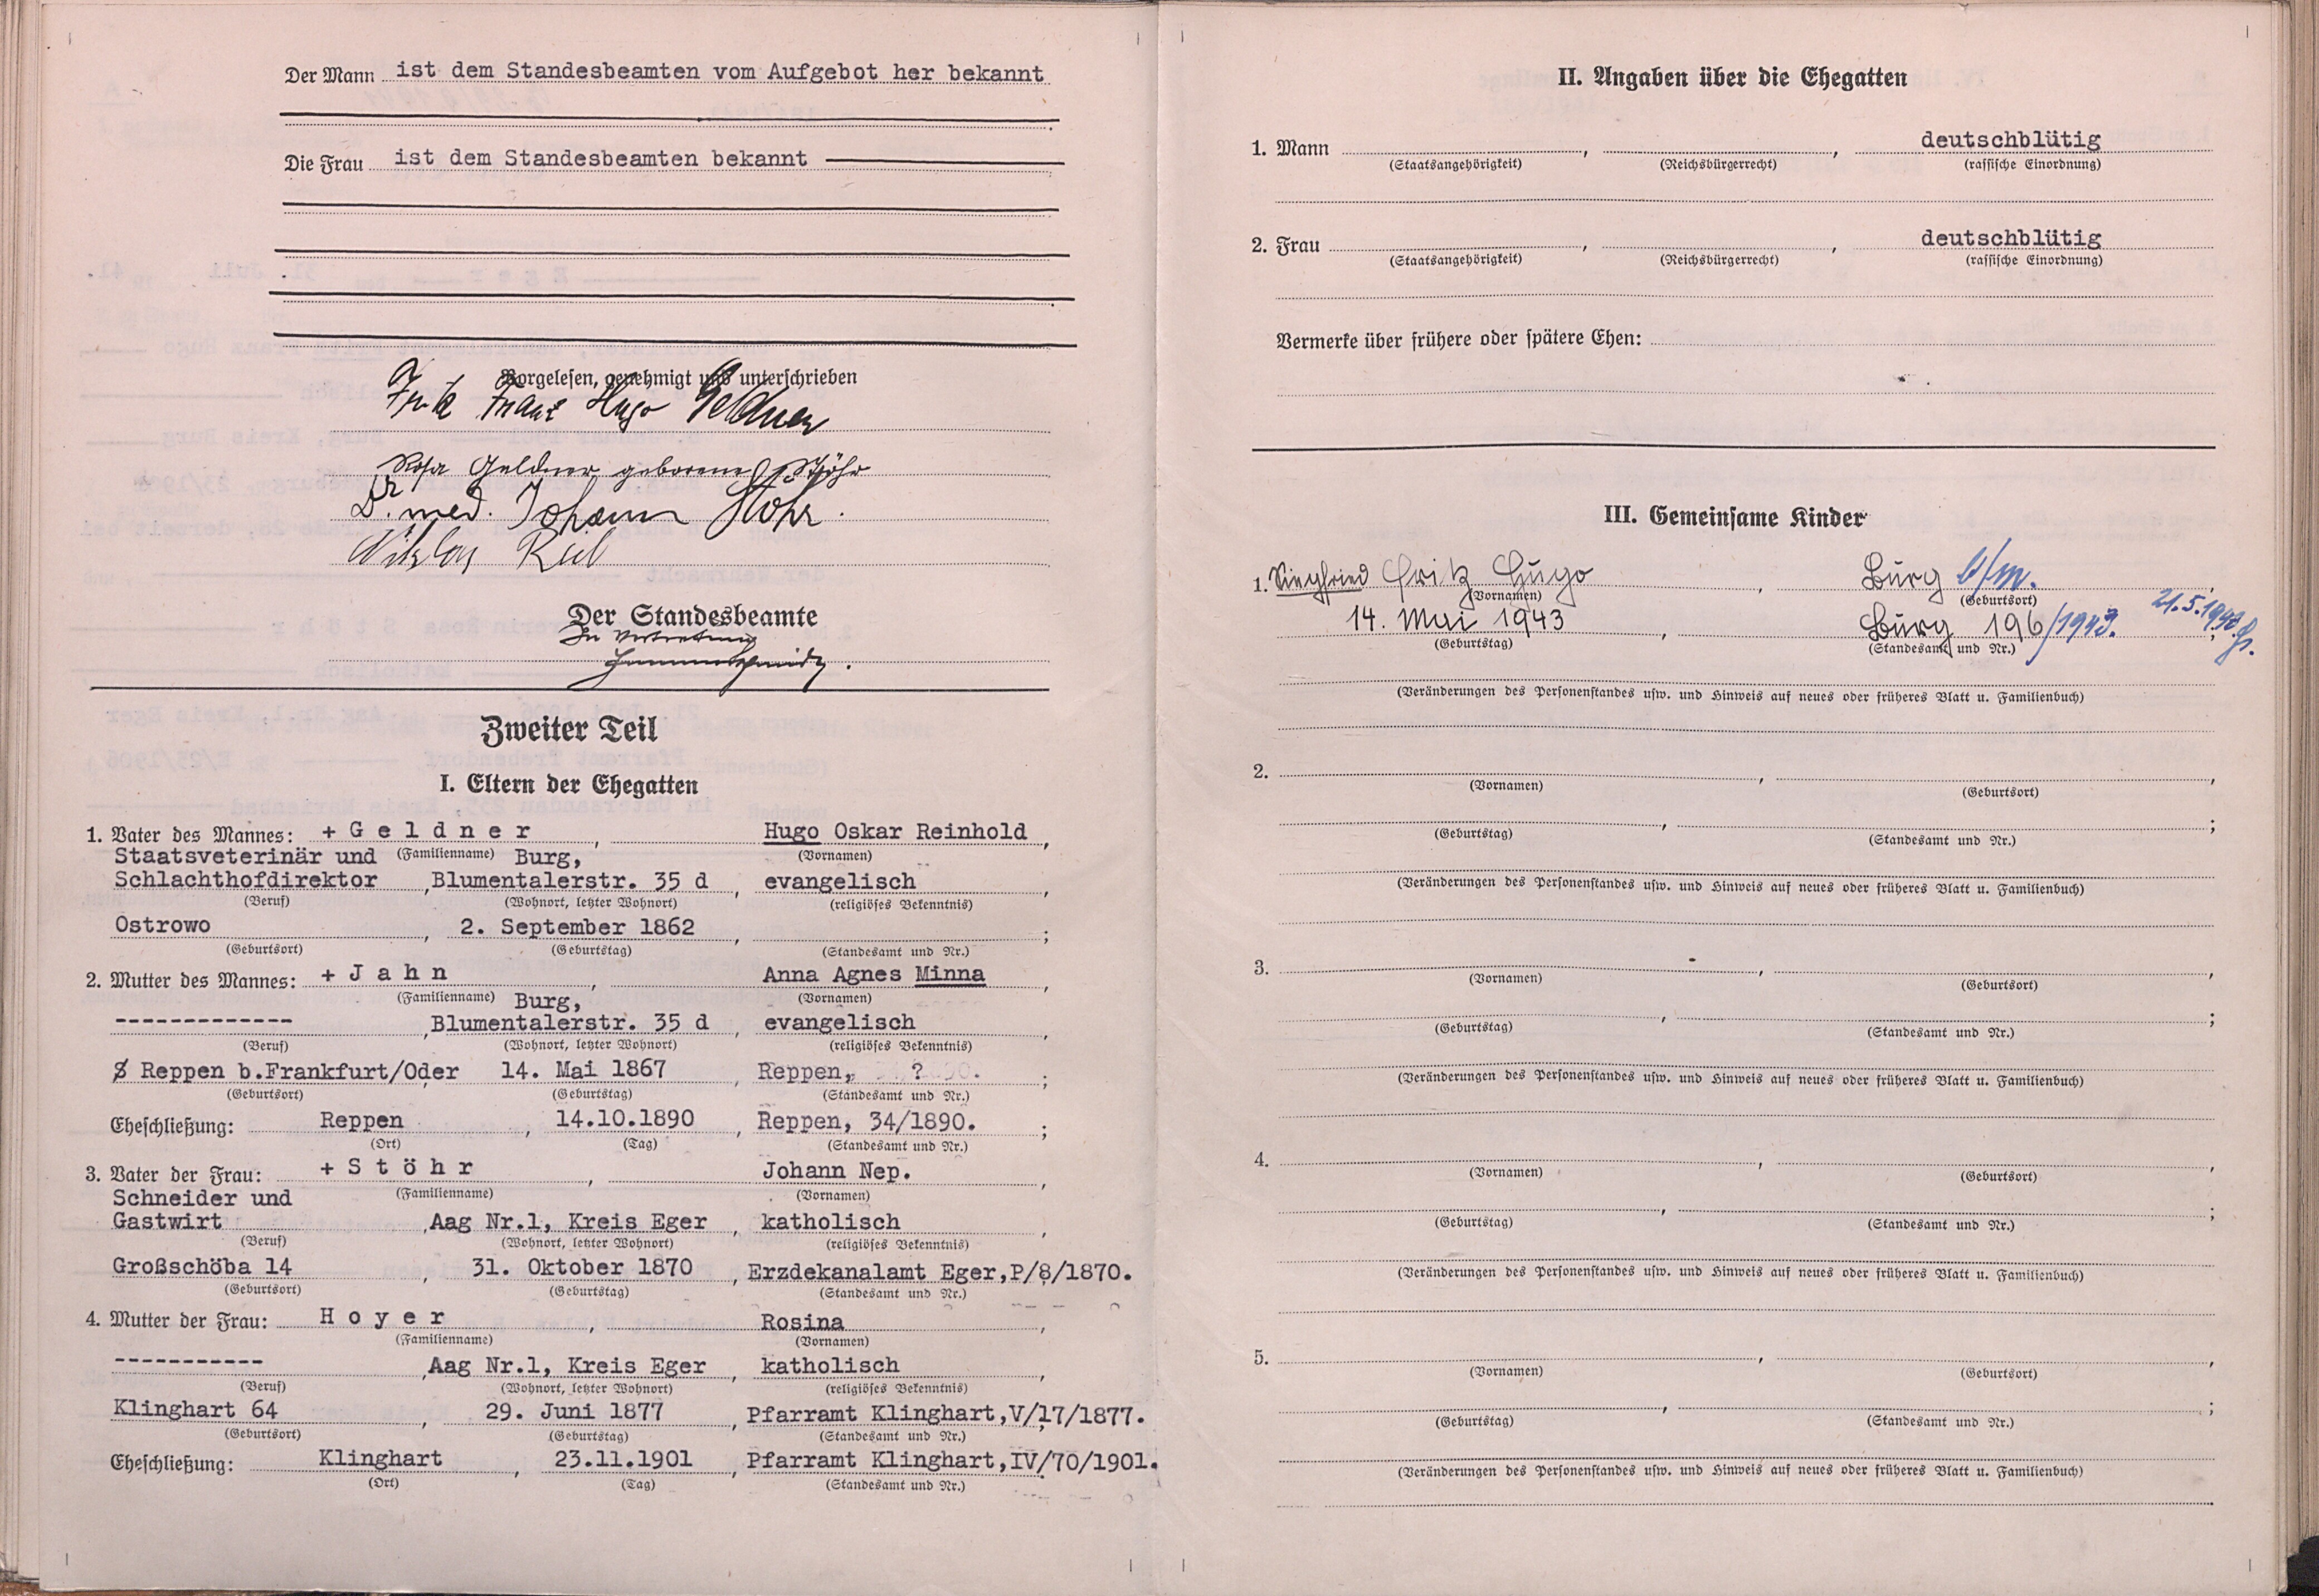 Der Mann ist dem Standesbeamten vom Aufgebot her bekannt
Die Frau ist dem Standesbeamten bekannt
Vorgelesen, genehmigt und unterschrieben
Fritz Franz Hugo Geldner
Rosa Geldner geborene Stöhr
Dr. med. Johann Stöhr.
Der Standesbeamte
In Vertretung
Zweiter Teil
I. Eltern der Ehegatten
1. Vater des Mannes: + G e l d n e r , Hugo Oskar Reinhold ,
Staatsveterinär und (Familienname) Burg, (Vornamen)
Schlachthofdirektor , Blumentalerstr. 35 d , evangelisch ,
(Beruf) (Wohnort, letzter Wohnort) (religiöses Bekenntnis)
Ostrowo , 2. September 1862 , ;
(Geburtsort) (Geburtstag) (Standesamt und Nr.)
2. Mutter des Mannes: + J a h n , Anna Agnes Minna ,
(Familienname) Burg, (Vornamen)
------------- , Blumentalerstr. 35 d , evangelisch ,
(Beruf) (Wohnort, letzter Wohnort) (religiöses Bekenntnis)
Reppen b.Frankfurt/Oder 14. Mai 1867 , Reppen, ? ;
(Geburtsort) (Geburtstag) (Standesamt und Nr.)
Eheschließung: Reppen , 14.10.1890 , Reppen, 34/1890. ;
(Ort) (Tag) (Standesamt und Nr.)
3. Vater der Frau: + S t ö h r , Johann Nep. ,
Schneider und (Familienname) (Vornamen)
Gastwirt , Aag Nr.1, Kreis Eger , katholisch ,
(Beruf) (Wohnort, letzter Wohnort) (religiöses Bekenntnis)
Großschöba 14 , 31. Oktober 1870 , Erzdekanalamt Eger,P/8/1870.
(Geburtsort) (Geburtstag) (Standesamt und Nr.)
4. Mutter der Frau: H o y e r , Rosina ,
(Familienname) (Vornamen)
----------- , Aag Nr.1, Kreis Eger , katholisch ,
(Beruf) (Wohnort, letzter Wohnort) (religiöses Bekenntnis)
Klinghart 64 , 29. Juni 1877 , Pfarramt Klinghart,V/17/1877.
(Geburtsort) (Geburtstag) (Standesamt und Nr.)
Eheschließung: Klinghart , 23.11.1901 , Pfarramt Klinghart,IV/70/1901.
(Ort) (Tag) (Standesamt und Nr.)
II. Angaben über die Ehegatten
1. Mann , , deutschblütig
(Staatsangehörigkeit) (Reichsbürgerrecht) (rassische Einordnung)
2. Frau , , deutschblütig
(Staatsangehörigkeit) (Reichsbürgerrecht) (rassische Einordnung)
Vermerke über frühere oder spätere Ehen:
III. Gemeinsame Kinder
1. Siegfried Fritz Hugo , Burg b/m. ,
(Vornamen) (Geburtsort)
14. Mai 1943 , Burg 196/1943. ;
(Geburtstag) (Standesamt und Nr.)
(Veränderungen des Personenstandes usw. und Hinweis auf neues oder früheres Blatt u. Familienbuch)
2. , ,
(Vornamen) (Geburtsort)
, ;
(Geburtstag) (Standesamt und Nr.)
(Veränderungen des Personenstandes usw. und Hinweis auf neues oder früheres Blatt u. Familienbuch)
3. , ,
(Vornamen) (Geburtsort)
, ;
(Geburtstag) (Standesamt und Nr.)
(Veränderungen des Personenstandes usw. und Hinweis auf neues oder früheres Blatt u. Familienbuch)
4. , ,
(Vornamen) (Geburtsort)
, ;
(Geburtstag) (Standesamt und Nr.)
(Veränderungen des Personenstandes usw. und Hinweis auf neues oder früheres Blatt u. Familienbuch)
5. , ,
(Vornamen) (Geburtsort)
, ;
(Geburtstag) (Standesamt und Nr.)
(Veränderungen des Personenstandes usw. und Hinweis auf neues oder früheres Blatt u. Familienbuch)